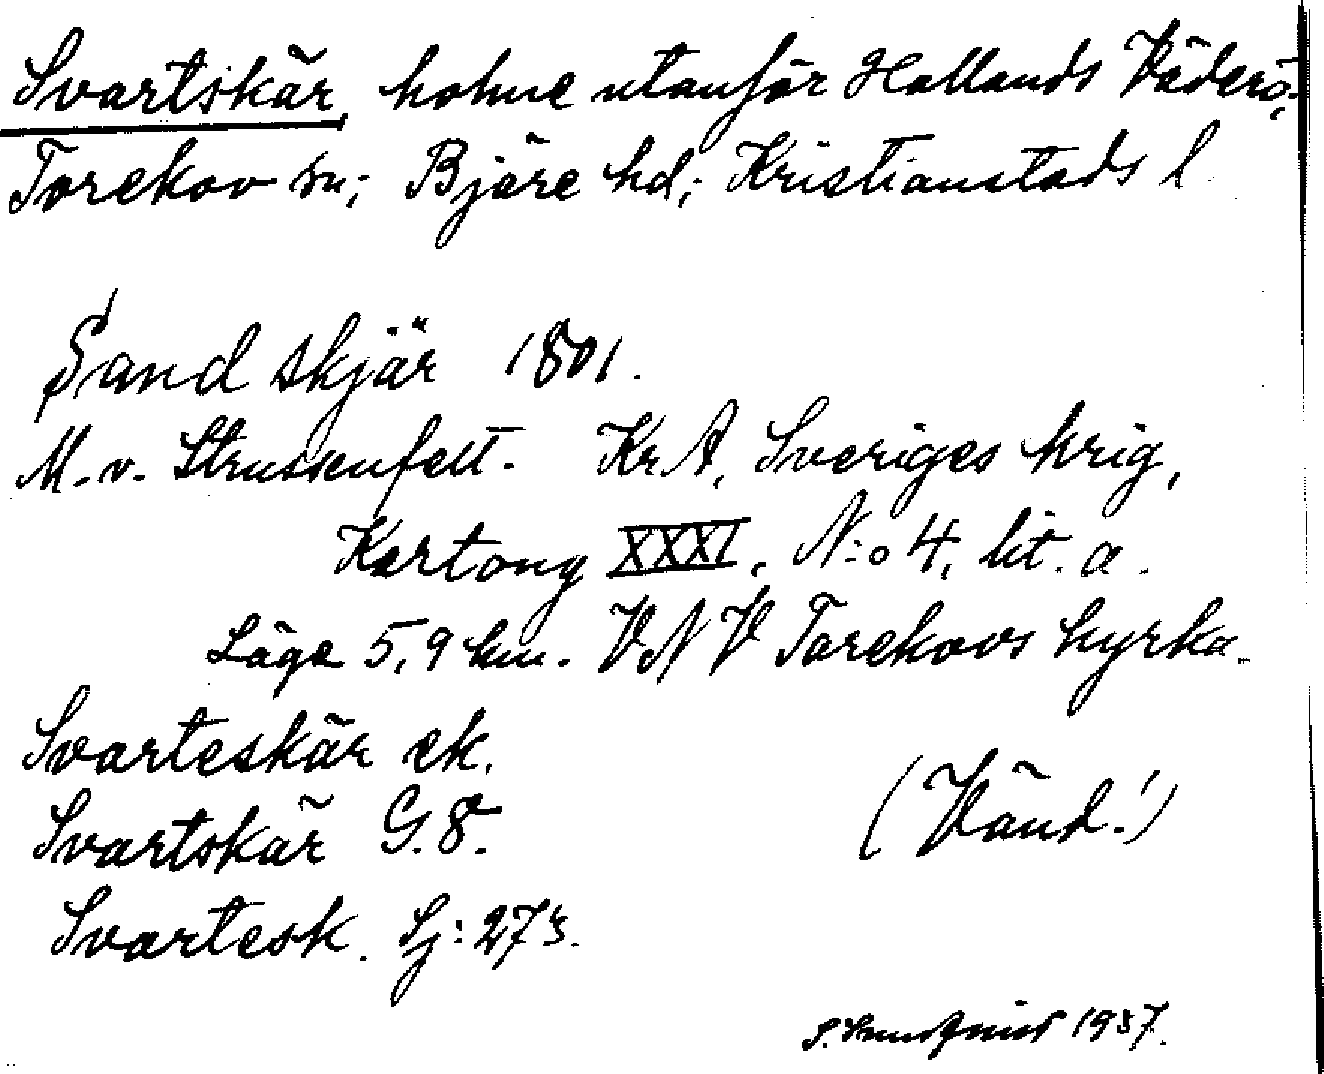 Svartskär, holme utanför Hallands Väderö,
Torekov sn; Bjäre hd; Kristianstads l
Sand skjär 1801.
M. v. Strussenfelt. KrA, Sveriges krig,
Kartong XXXI, N:o 4, lit. a.
Läge 5,9 km. VNV Torekovs kyrka.
Svarteskär ek.
Svartskär G.8.
(Vänd!)
Svartesk. Sj: 273.
S. 1937.